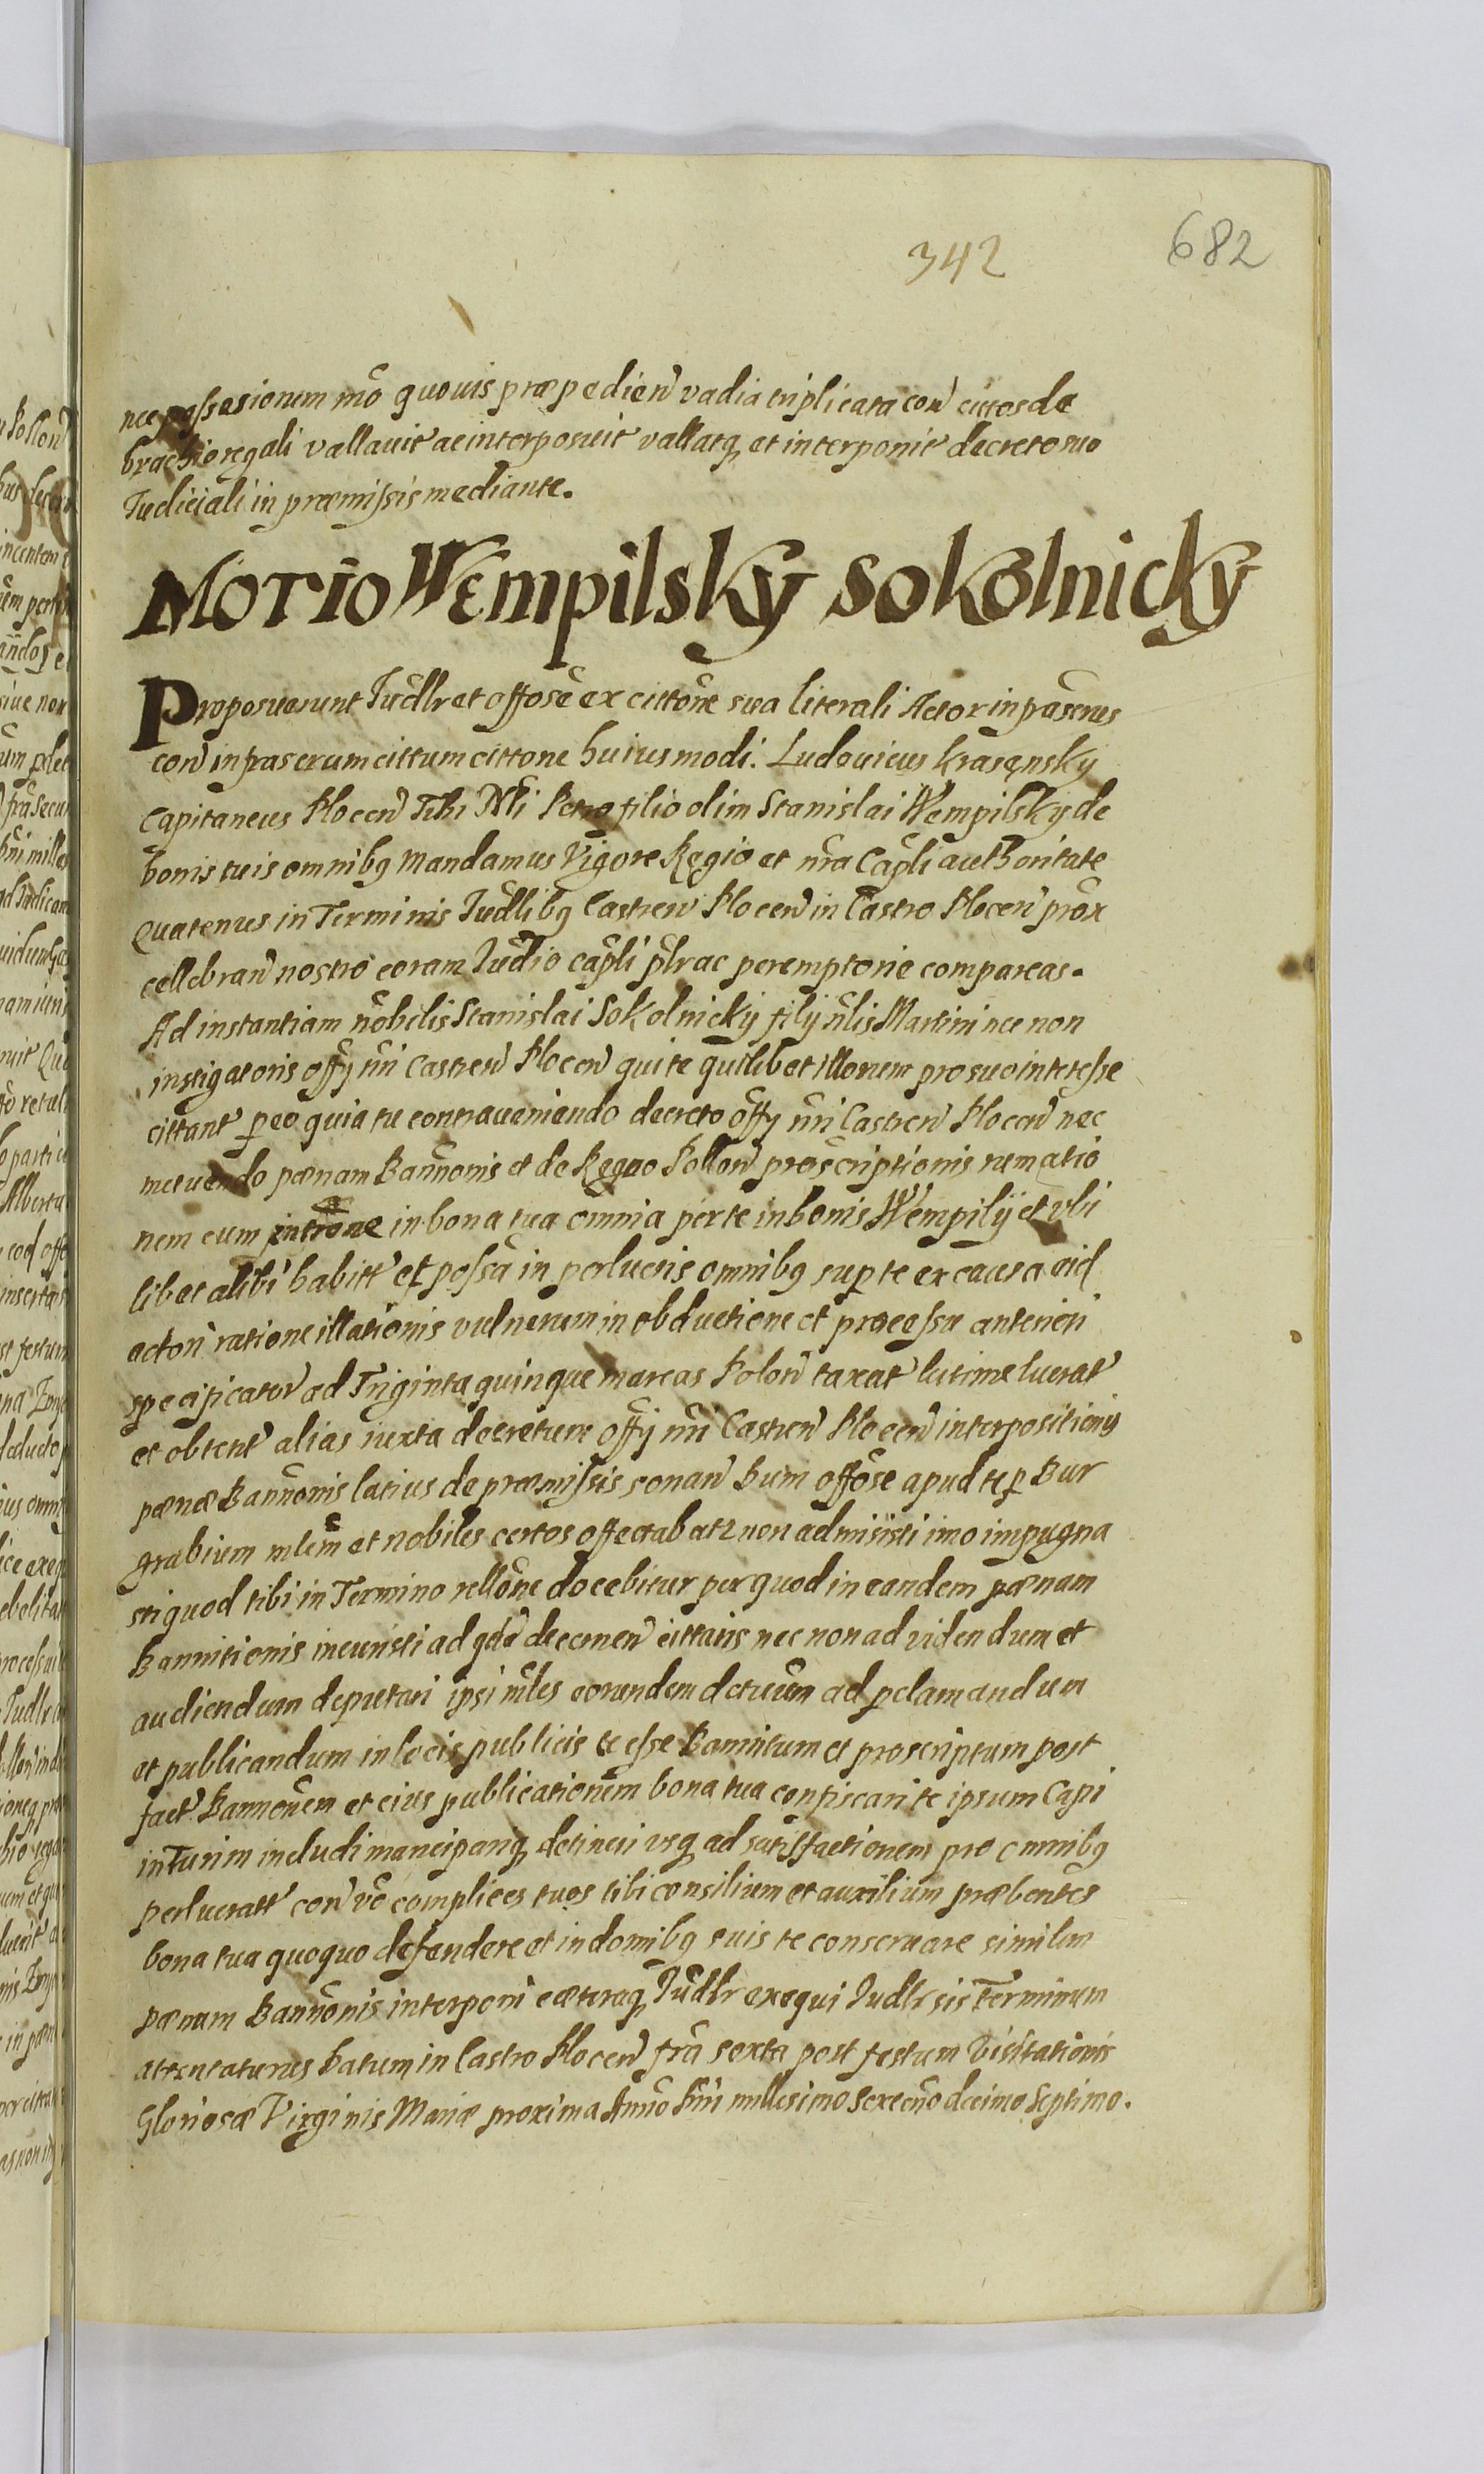 342 682
nce possesionem mō quouis præpedień vadia triplicata coń cittos de
brachio regali vallauit ac interposuit vallatq, et interponit decreto suo
Iudiciali in præmissis mediante.
Motio Wempilsky Sokolnicky
Proposuerunt Iudlr et offose ex cittone sua literali Actor inpascrus
coń inpascrum cittum cittone huiusmodi. Ludouicus Krasęnsky
Capitaneus Plocen Tibi Nli Petro filio olim Stanislai Wempilsky de
bonis tuis omnibq mandamus Vigore Regio et nra Capli authoritate
quatenus in Terminis Iudlibq Castreń Ploceń in Castro Ploceń prox
cellebrań nostro coram Iudio capli plr ac peremptorie compareas.
Ad instantiam nobilis Stanislai Sokolnicky filÿ nlis Martini nec non
instigatoris offÿ nri Castreń Ploceń qui te quilibet illorum pro suo interesse
cittant p eo quia tu contraueniendo decreto offÿ nri Castreń Ploceń nec
metuendo pænam Bannonis et de Regno Polloń proscriptionis rematio
nem cum introne in bona tua omnia per te in bonis Wempilÿ et vbi
libet alibi habitt et possa in perlucris omnibq sup te ex causa eid
actori ratione illationis vulnerum in obductione et processu anteriori
specificator ad Triginta quinque marcas Poloń taxat lutime lucrat
et obtent alias iuxta decretum offÿ nri Castreń Ploceń interpositionis
pænæ Bannonis latius de præmissis sonań Bum offose apud te p Bur
grabium mlem et nobiles certos affectabatr non admisisti imo impugna
sti quod tibi in Termino rellone docebitur per quod in eandem pænam
Bannitionis incuristi ad qdd decerneń cittaris nec non ad videndum et
audiendum deputari ipsi mles eorundem detuum ad pclamandum
et publicandum in locis publicis te esse Bannitum et proscriptum post
fact Bannonem et eius publicationem bona tua confiscari te ipsum Capi
in Turim includi manciparq, detineri vsq, ad satisfactionem pro omnibq
perlucratt coń vo complices tuos tibi consilium et auxilium præbentes
bona tua quoquo defendere et in domibq suis te conseruare similem
pænam Bannonis interponi cæteraq, Iudlr exequi Iudlr sis Terminum
attentaturus Datum in Castro Ploceń fra sexta post festum Visitationis
Gloriosæ Virginis Mariæ proxima Anno Dni millesimo Sexcno decimo Septimo.